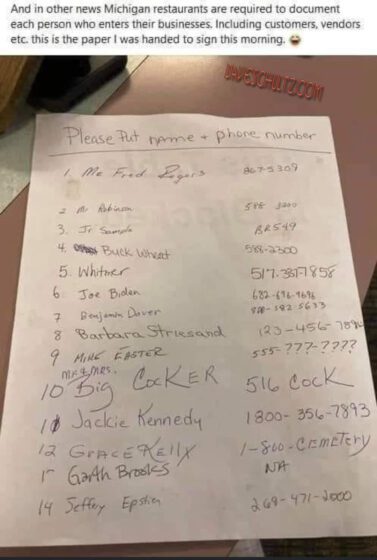 And in other news Michigan restaurants are required to document
each person who enters their businesses. Including customers, vendors
etc. this is the paper I was handed to sign this morning. 😂
DAVESCHULTZ.COM
Please Put name + phone number
1. Mr Fred Rogers 867-5309
2 Mr Robinson 588 3200
3. Jr Sample BR549
4. Buck Wheat 588-2300
5. Whitmer 517.387-7858
6. Joe Biden
7 Benjamin Dover
8 Barbara Striesand 123-456-7890
9 MIKE EASTER 555-???-????
MR & MRS.
10 Big COCKER 516 COCK
11 Jackie Kennedy 1800-356-7893
12 GRACE KELLY 1-800-CEMETERY
Garth Brooks NA
14 Jeffery Epstien 269-471-2000